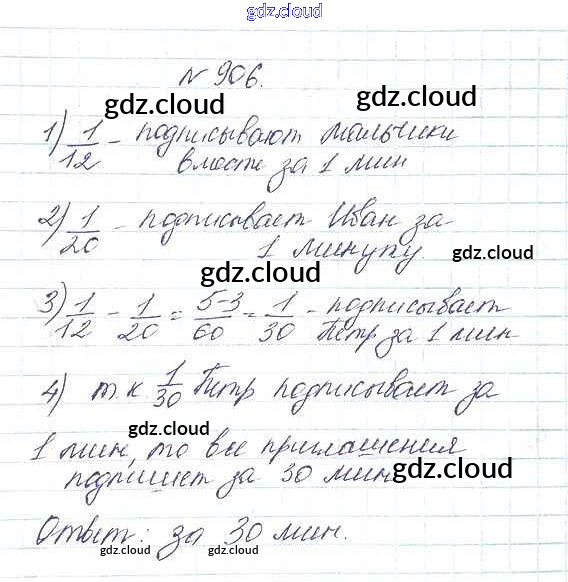 gdz.cloud
gdz.cloud
N 906.
gdz.cloud
gdz.cloud
1) 1/12 - подписывают мальчики
вместе за 1 мин
gdz.cloud
2) 1/20 - подписывает Иван за
1 минуту.
gdz.cloud
gdz.cloud
3) 1/12 - 1/20 = 5-3/60 = 1/30 - подписывает
Петр за 1 мин
4) т.к. 1/30 Петр подписывает за
gdz.cloud
1 мин, то все приглашения
gdz.cloud
подпишет за 30 мин
Ответ: за 30 мин.
gdz.cloud
gdz.cloud
gdz.cloud